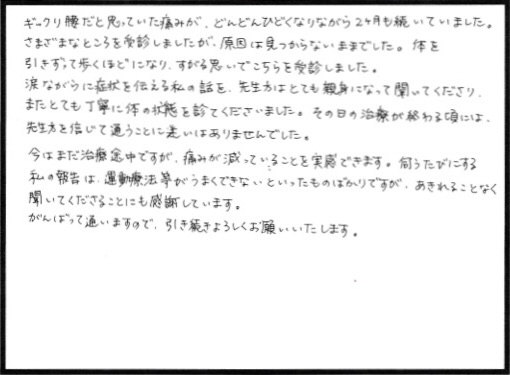 ギックリ腰だと思っていた痛みが、どんどんひどくなりながら2ヶ月も続いていました。
さまざまなところを受診しましたが、原因は見つからないままでした。体を
引きずって歩くほどになり、すがる思いでこちらを受診しました。
涙ながらに症状を伝える私の話を、先生方はとても親身になって聞いてくださり、
またとても丁寧に体の状態を診てくださいました。その日の治療が終わる頃には、
先生方を信じて通うことに迷いはありませんでした。
今はまだ治療途中ですが、痛みが減っていることを実感できます。伺うたびにする
私の報告は、運動療法等がうまくできないといったものばかりですが、あきれることなく
聞いてくださることにも感謝しています。
がんばって通いますので、引き続きよろしくお願いいたします。